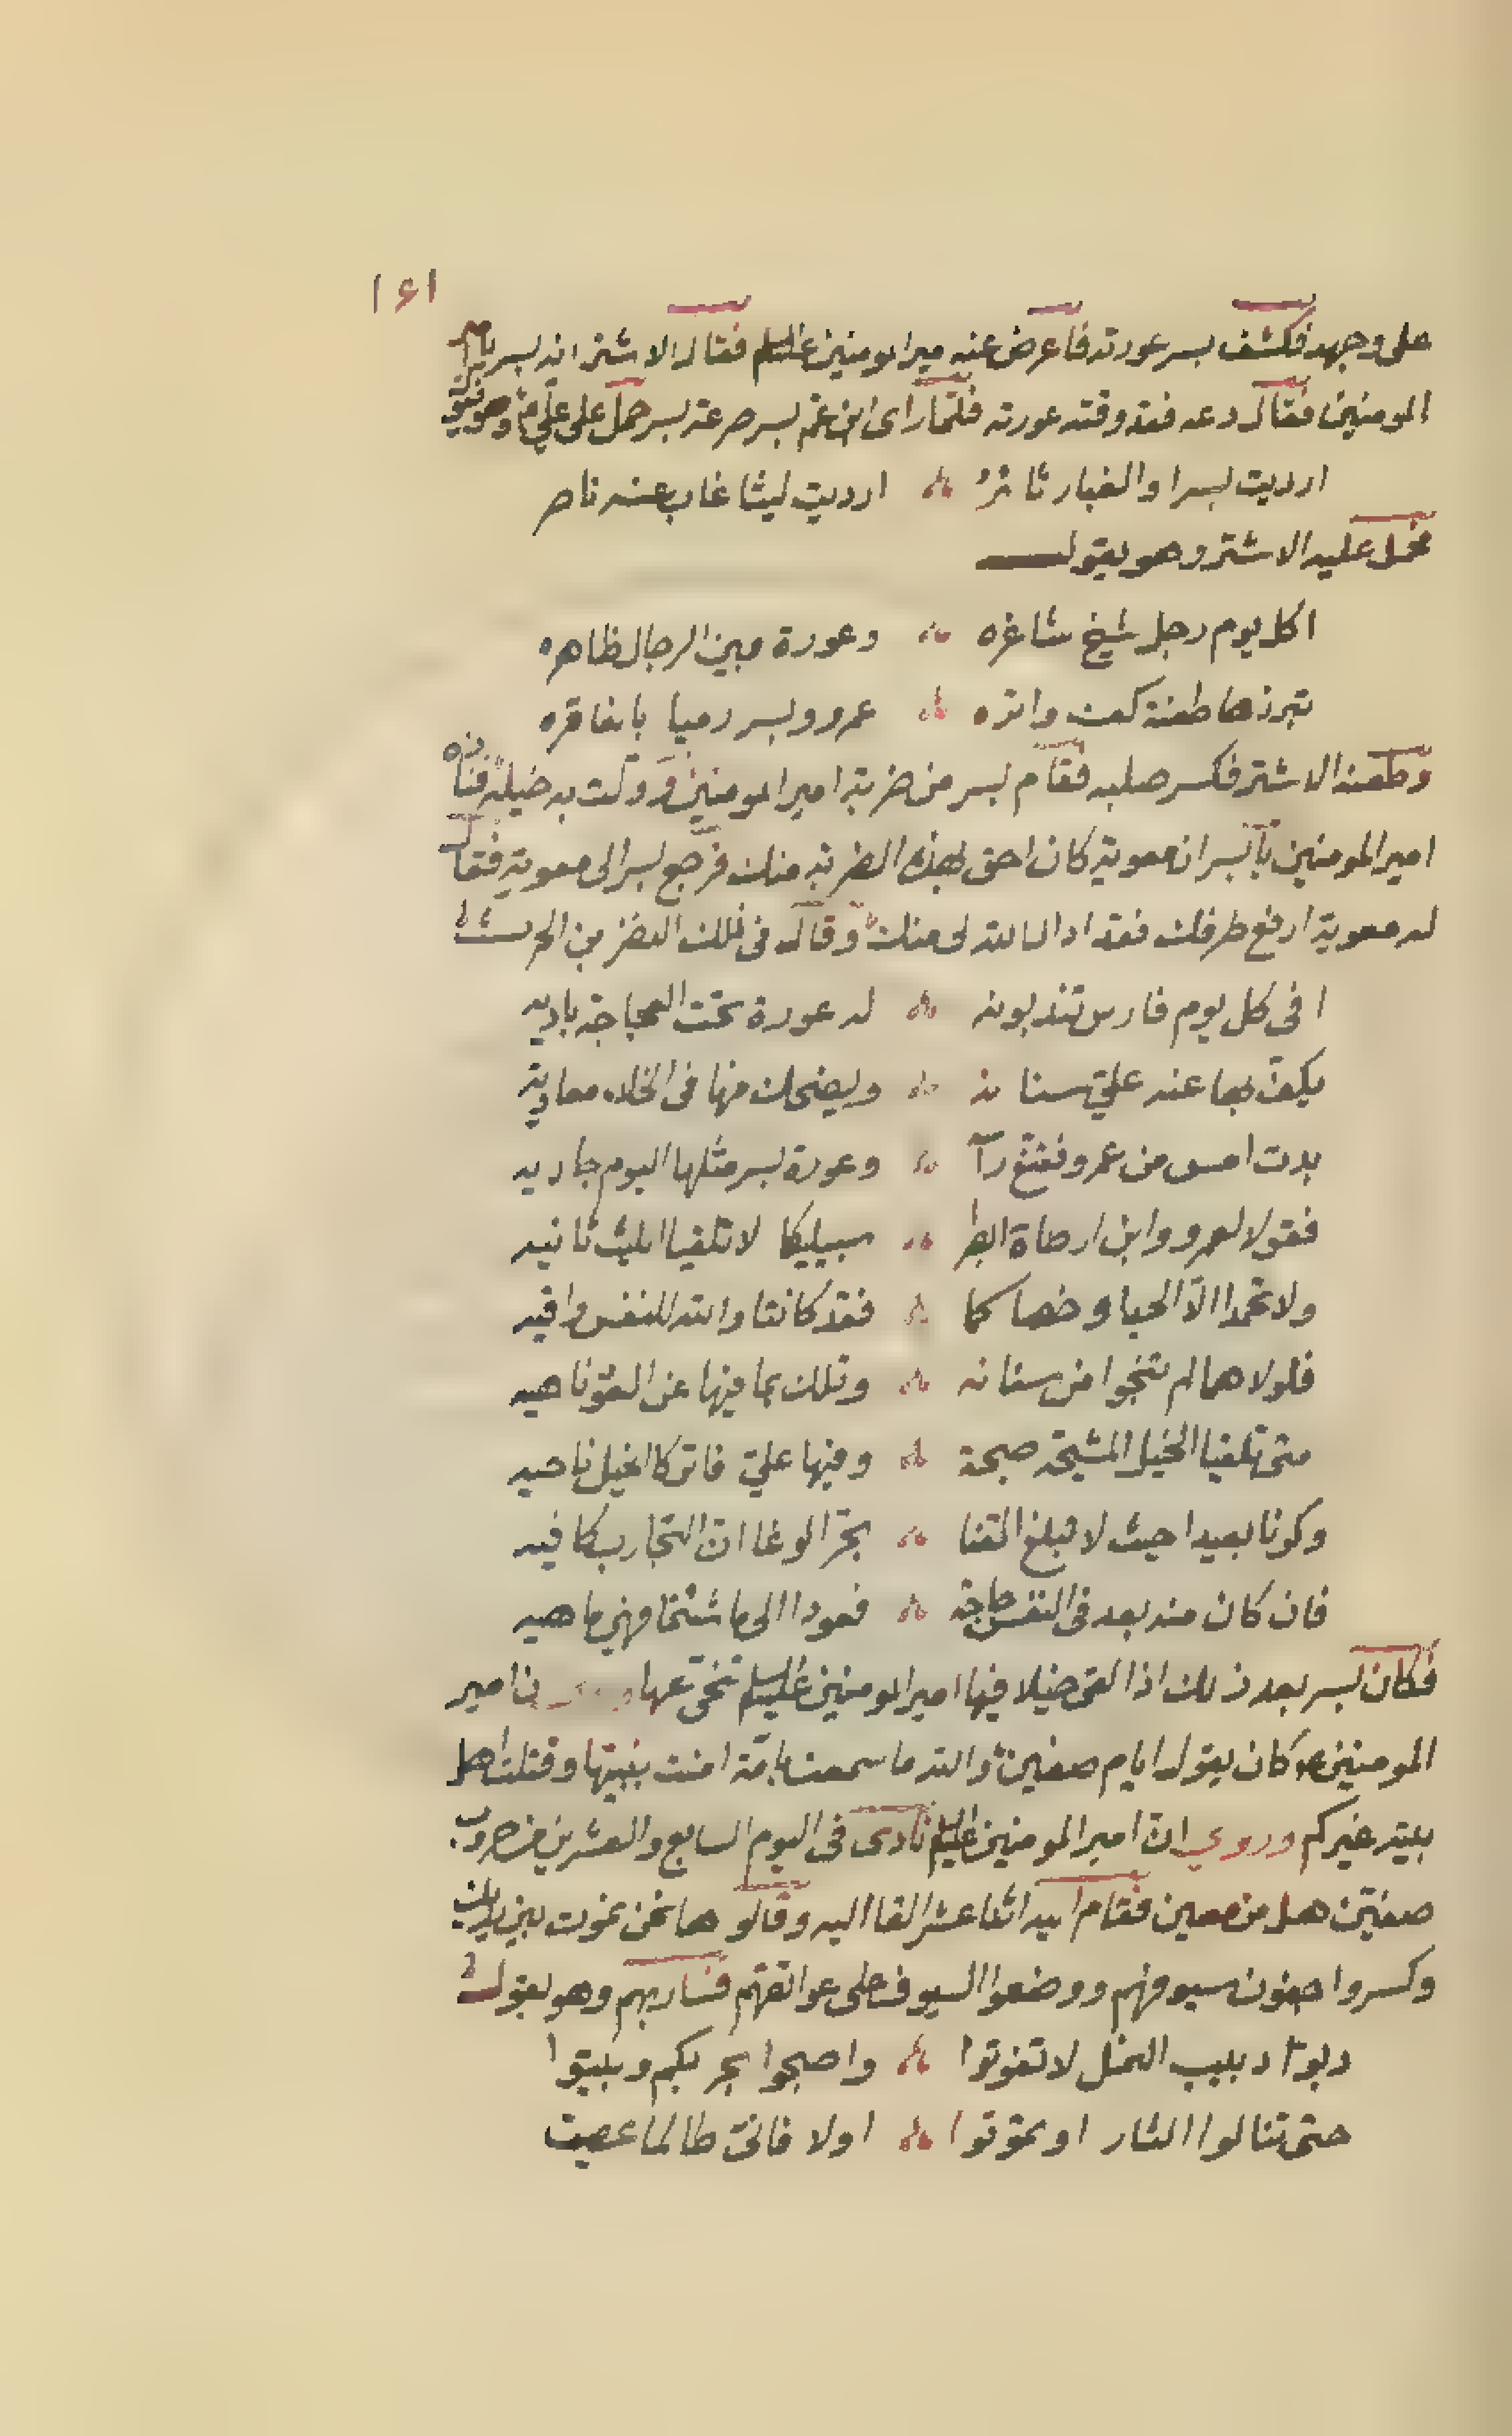 ١٤١
على وجهه فكشف بسر عورته فاعرض عنه مير المومنين عليه السلم فقال الاشتر انه بسر يا امير
المومنين فقال دعه فقد وقته عورته فلما راى ابن عم بسر صرعة بسر حمل على علي وهو يقول
ارديت بسرا والغبار ثائره ارديت ليثا غاب عنه ناصر
فحمل عليه الاشتر وهو يقول
اكل يوم رجل شيخ شاغره وعورة مبين الرجال ظاهره
تبرزها طعنة كف واتره عمرو وبسر رميا بالفاقره
وطعنه الاشتر فكسر صلبه فقام بسر من ضربة امير المومنين وولت به خيله فناداه
امير المومنين يا بسر ان معوية كان احق بهذه الضربة منك فرجع بسر الى معوية فقال
له معوية ارفع طرفك فقد ادال الله لى منك وقال في ذلك النضر بن الحرث
افى كل يوم فارس تندبونه له عورة تحت العجاجة باديه
يكف بها عنه علي سنانه ويضحك منها فى الخلاء معاوية
بدت امس من عمرو فقنع رأ وعورة بسر مثلها اليوم جاديه
فقولا لعمرو وابن ارطاة ابصرا سبيليكما لا تلقيا الليث ثانيه
ولا تحمدا الا الحيا وخصاكما فقد كانتا والله للنفس واقيه
فلولا هما لم تنجوا من سنانه وتلك بما فيها عن العود ناهيه
متى تلقيا الخيل المشيحة صبحة وفيها علي فاتركا الخيل ناحيه
وكونا بعيدا حيث لا تبلغ القنا بحر الوغا ان التجارب كافيه
فان كان منه بعد فى النفس حاجة فعودا الى ما شئتما فهي ما هيه
فكان بسر بعد ذلك اذا لقى خيلا فيها امير المومنين عليه السلم تنحى عنها ان امير
المومنين كان يقول ايام صفين والله ما سمعت بامة امنت بنبيها وقتلت اهل
بيته غيركم وروي ان امير المومنين عليه السلم نادى فى اليوم السابع والعشرين من حروب
صفين هل من معين فقام اليه اثنا عشر الفا اليه وقالو ها نحن نموت بين يديك
وكسروا جفون سيوفهم ووضعوا السيوف على عواتقهم فسار بهم وهو يقول
دبوا دبيب النمل لا تفوتوا واصبحوا بحربكم وبيتوا
حتى تنالوا الثار او تموتوا اولا فاني طالما عصيت